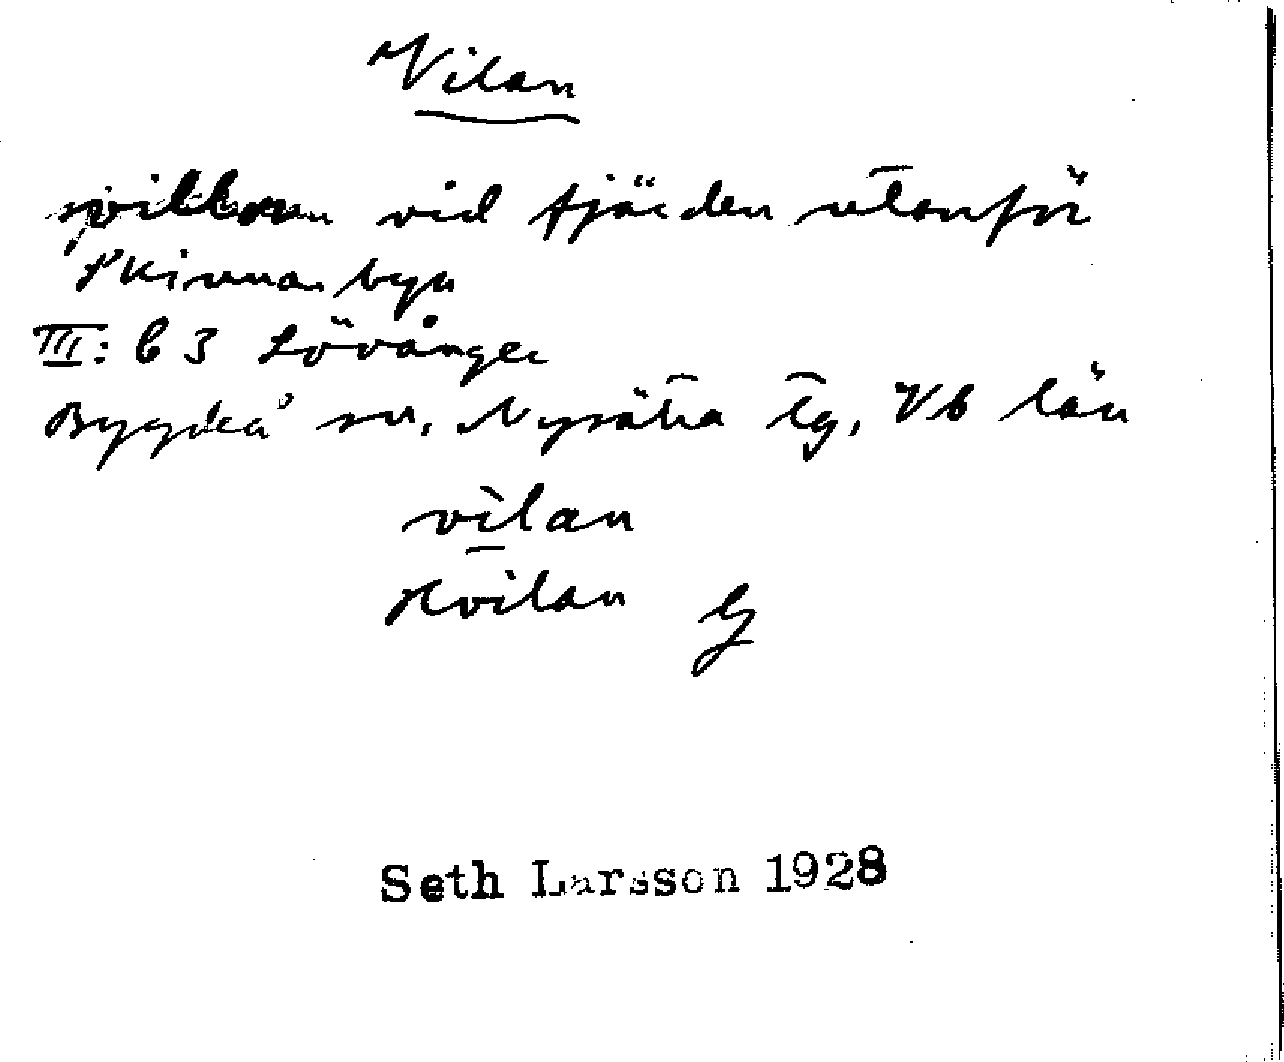 Vilan
vid fjärden utanför
Skinnarbyn
III: b 3 Lövånger
Bygdeå sn, Nysätra tg, Vb län
vilan
Hvilan G
Seth Larsson 1928